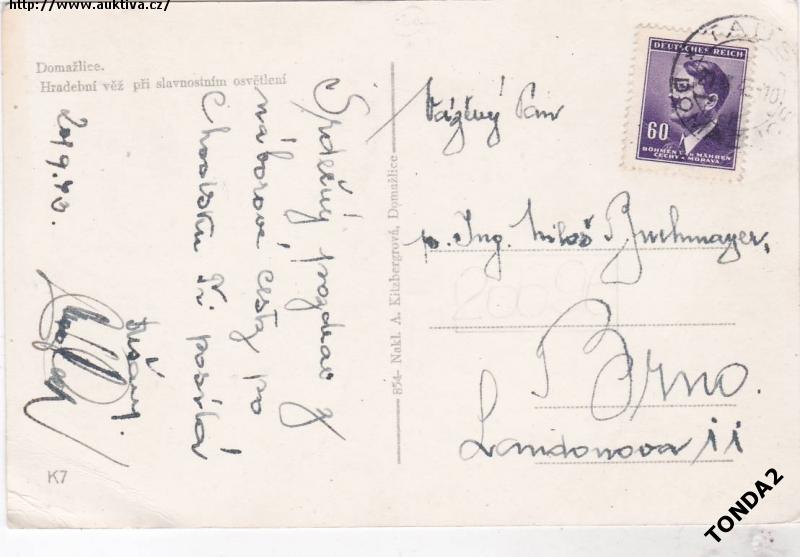 http://www.auktiva.cz/
Domažlice.
Hradební věž při slavnostním osvětlení
Srdečný pozdrav z
náborové cesty po
Chodsku Ti posílá
Dušan
20/9.43.
K7
854- Nakl. A. Kitzbergrová, Domažlice
DEUTSCHES REICH
60
BÖHMEN u. MÄHREN
ČECHY a MORAVA
TAUS
Vážený Pan
p. Ing. Miloš Buchmayer,
Brno.
Landonova 11
TONDA2